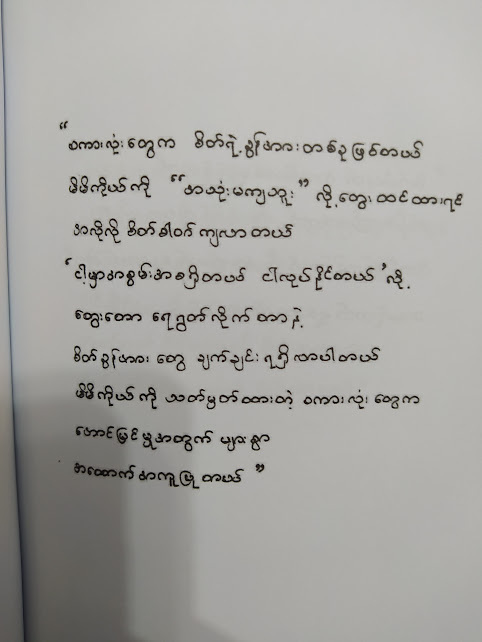 “စကားလုံးတွေက စိတ်ရဲ့ခွန်အားတစ်ခုဖြစ်တယ်
မိမိကိုယ်ကို “အသုံးမကျဘူး” လို့တွေးထင်ထားရင်
အလိုလို စိတ်ဓါတ်ကျလာတယ်
‘ငါ့မှာအစွမ်းအစရှိတယ် ငါလုပ်နိုင်တယ်’လို့
တွေးတော ရေရွတ်လိုက်တာနဲ့
စိတ်ခွန်အားတွေ ချက်ချင်းရရှိလာပါတယ်
မိမိကိုယ်ကို သတ်မှတ်ထားတဲ့ စကားလုံးတွေက
အောင်မြင်မှုအတွက် များစွာ
အထောက်အကူပြုတယ်”